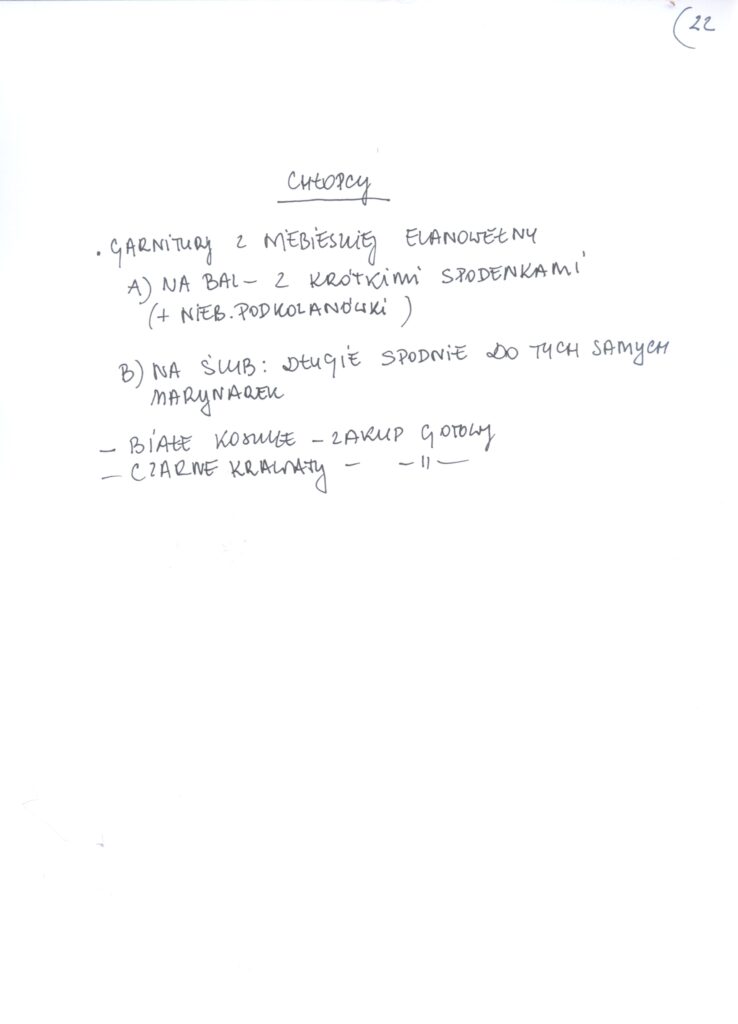 (22
CHŁOPCY
. GARNITURY Z NIEBIESKIEJ ELANOWEŁNY
A) NA BAL – Z KRÓTKIMI SPODENKAMI
(+ NIEB. PODKOLANÓWKI )
B) NA ŚLUB : DŁUGIE SPODNIE DO TYCH SAMYCH
MARYNAREK
– BIAŁE KOSZULE – ZAKUP GOTOWY
– CZARNE KRAWATY – – 11 –